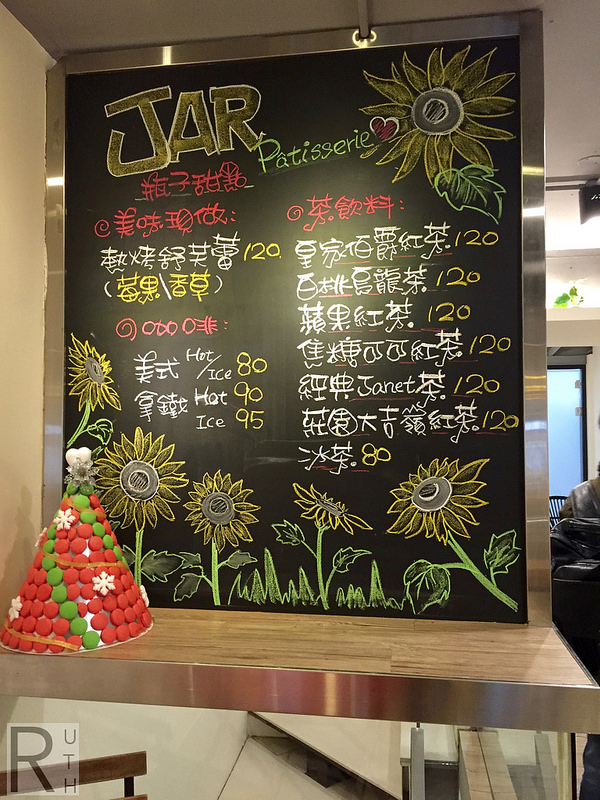 JAR
Pâtisserie
瓶子甜點
美味現做:
熱烤舒芙蕾 120
(莓果\香草)
咖啡:
美式 Hot/Ice 80
拿鐵 Hot 90
Ice 95
茶飲料:
皇家伯爵紅茶 120
白桃烏龍茶 120
蘋果紅茶 120
焦糖可可紅茶 120
經典Janet茶 120
莊園大吉嶺紅茶 120
冰茶 80
RUTH